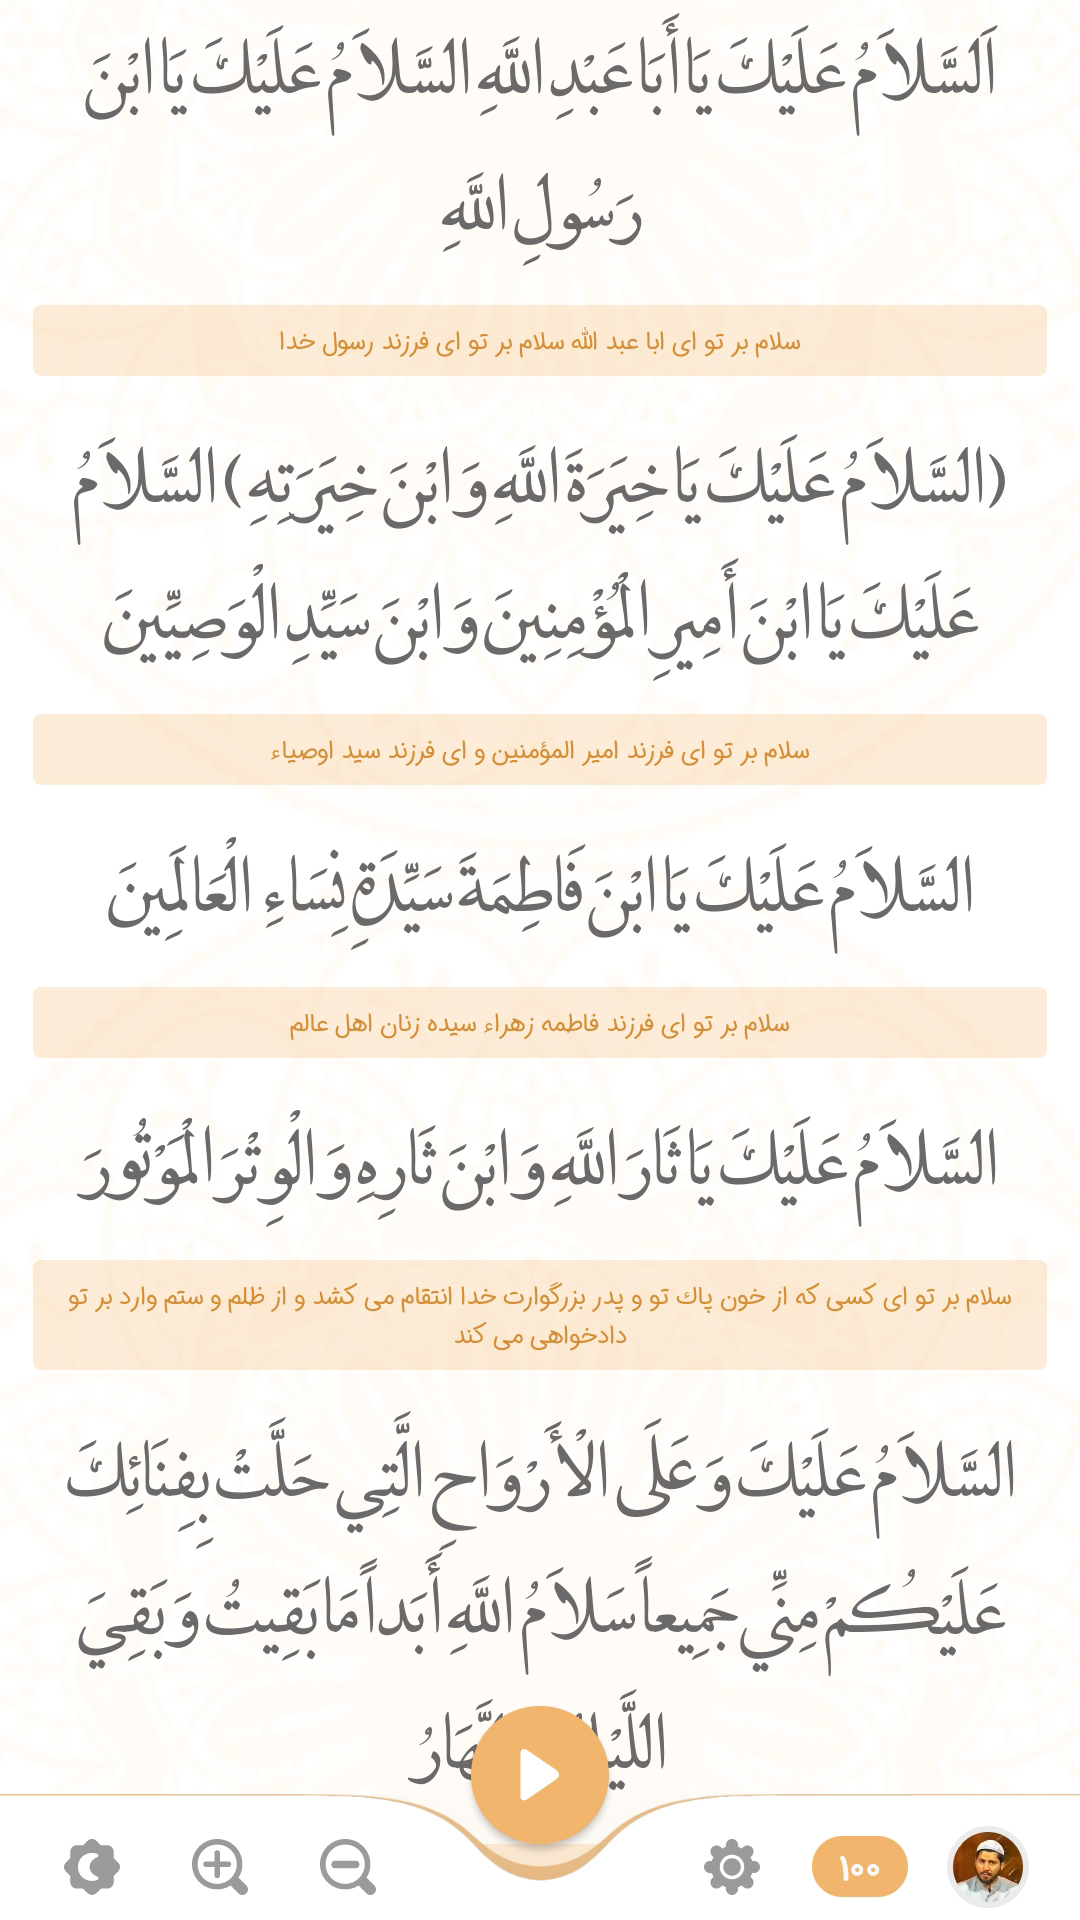 اَلسَّلاَمُ عَلَيْكَ يَا أَبَا عَبْدِ اللَّهِ السَّلاَمُ عَلَيْكَ يَا ابْنَ
رَسُولِ اللَّهِ
سلام بر تو ای ابا عبد الله سلام بر تو ای فرزند رسول خدا
(السَّلاَمُ عَلَيْكَ يَا خِيَرَةَ اللَّهِ وَ ابْنَ خِيَرَتِهِ) السَّلاَمُ
عَلَيْكَ يَا ابْنَ أَمِيرِ الْمُؤْمِنِينَ وَ ابْنَ سَيِّدِ الْوَصِيِّينَ
سلام بر تو ای فرزند امیر المؤمنین و ای فرزند سید اوصیاء
السَّلاَمُ عَلَيْكَ يَا ابْنَ فَاطِمَةَ سَيِّدَةِ نِسَاءِ الْعَالَمِينَ
سلام بر تو ای فرزند فاطمه زهراء سیده زنان اهل عالم
السَّلاَمُ عَلَيْكَ يَا ثَارَ اللَّهِ وَ ابْنَ ثَارِهِ وَ الْوِتْرَ الْمَوْتُورَ
سلام بر تو ای کسی که از خون پاك تو و پدر بزرگوارت خدا انتقام می کشد و از ظلم و ستم وارد بر تو
دادخواهی می کند
السَّلاَمُ عَلَيْكَ وَ عَلَى الْأَرْوَاحِ الَّتِي حَلَّتْ بِفِنَائِكَ
عَلَيْكُمْ مِنِّي جَمِيعاً سَلاَمُ اللَّهِ أَبَداً مَا بَقِيتُ وَ بَقِيَ
۱۰۰